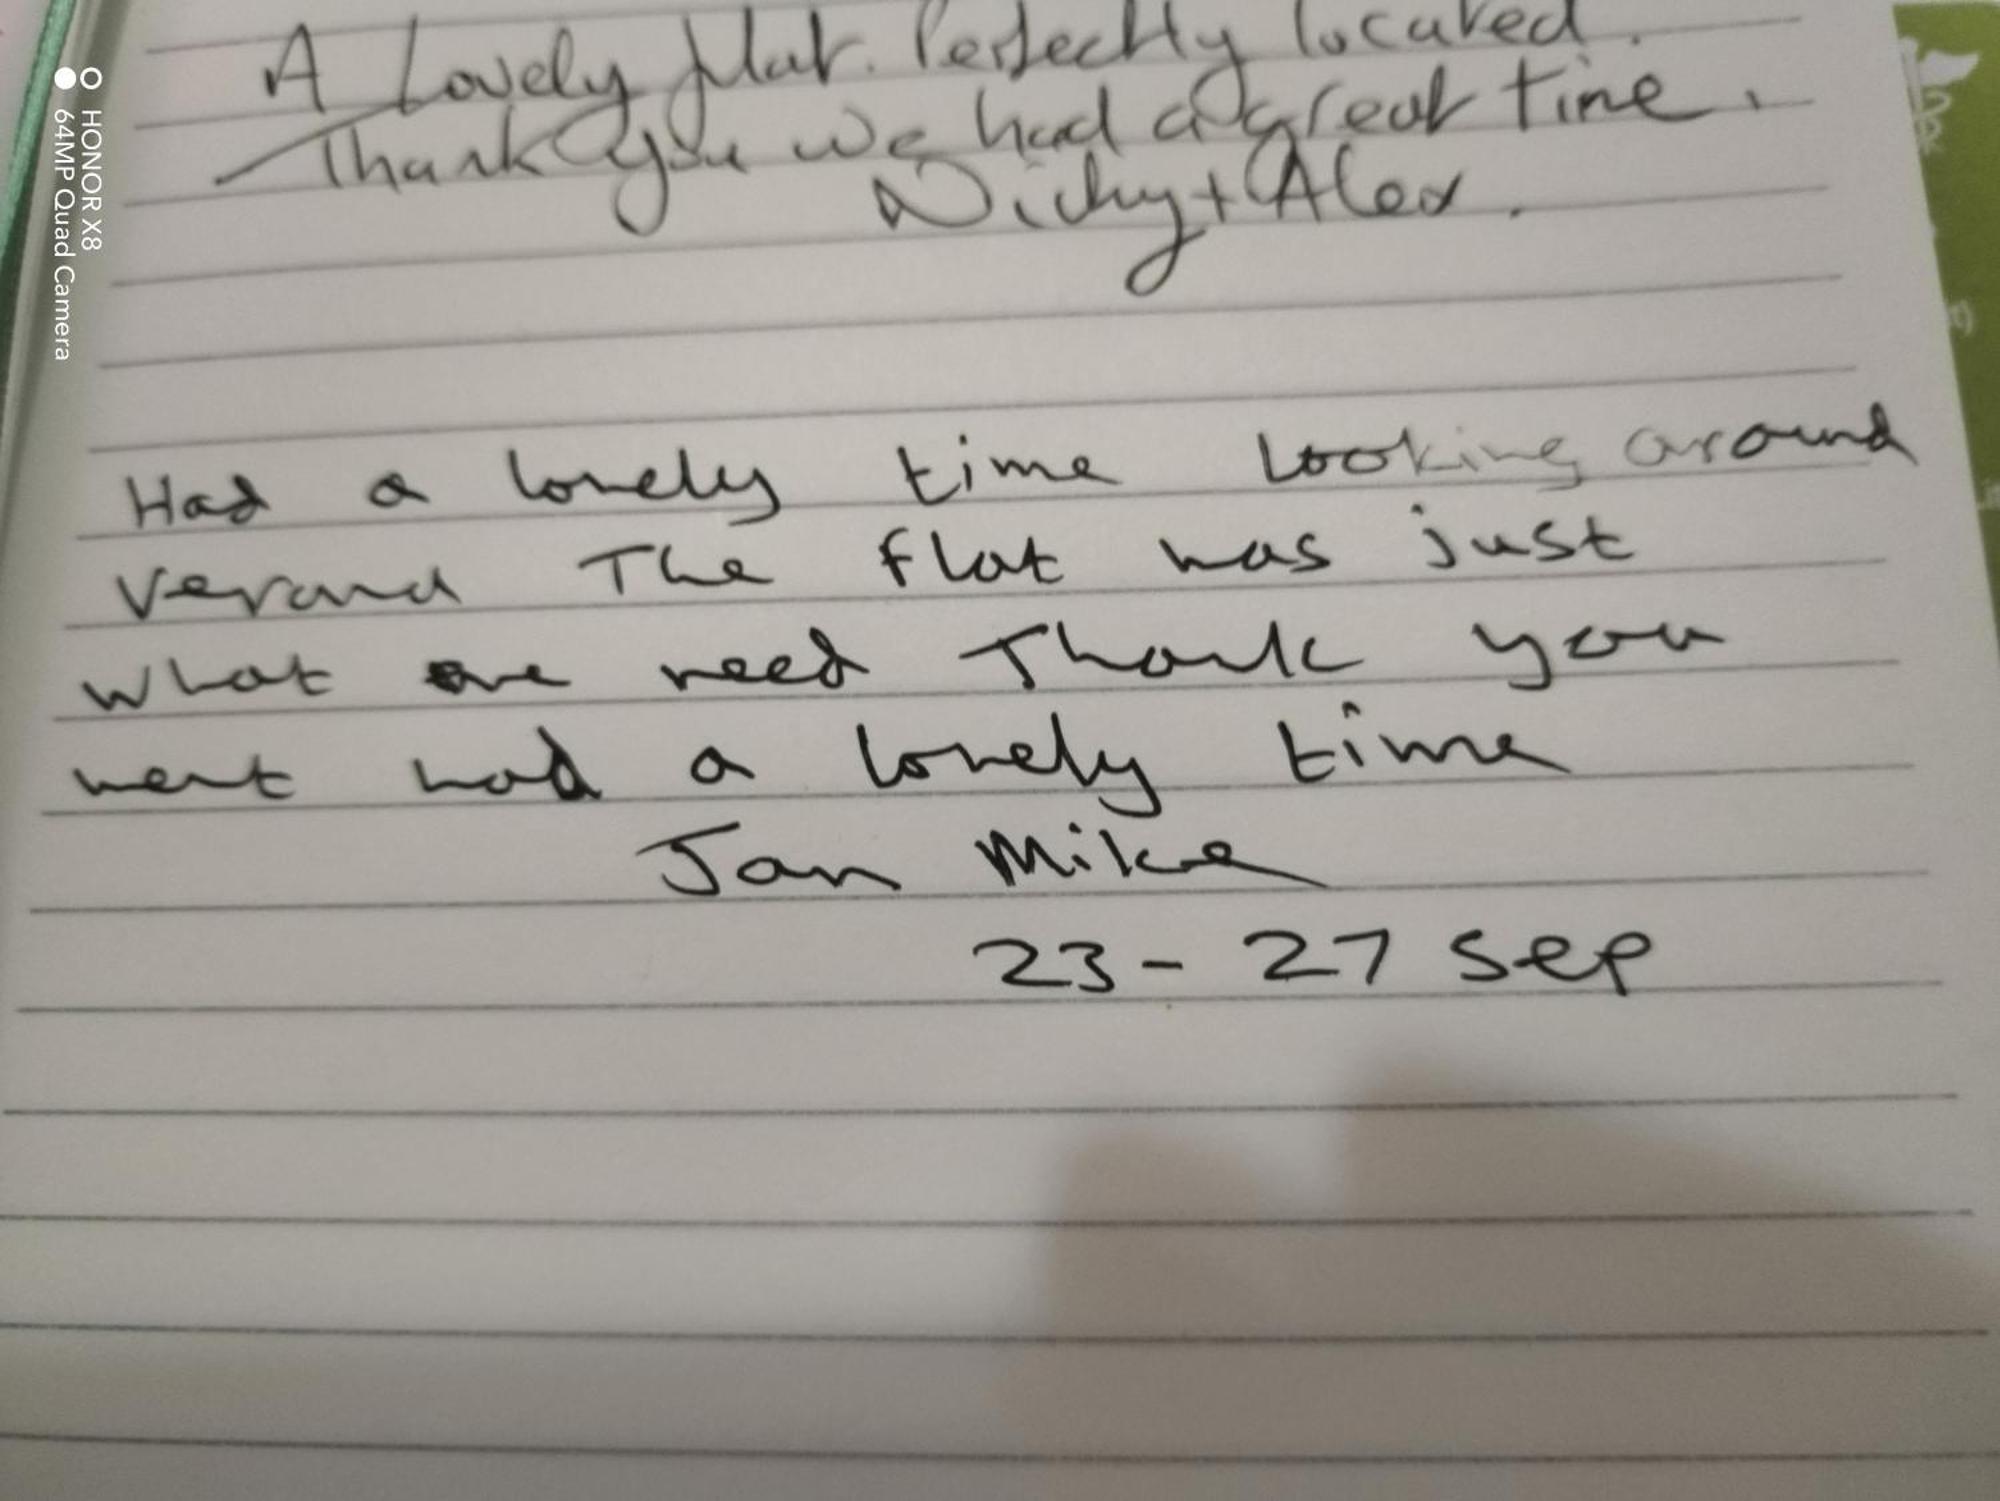 A Lovely flat. Perfectly located.
Thank you we had a great time.
Nicky + Alex.
Had a lovely time looking around
Verand The flat was just
what we need Thank you
went had a lovely time
Jan Mike
23 - 27 Sep
HONOR X8
64MP Quad Camera